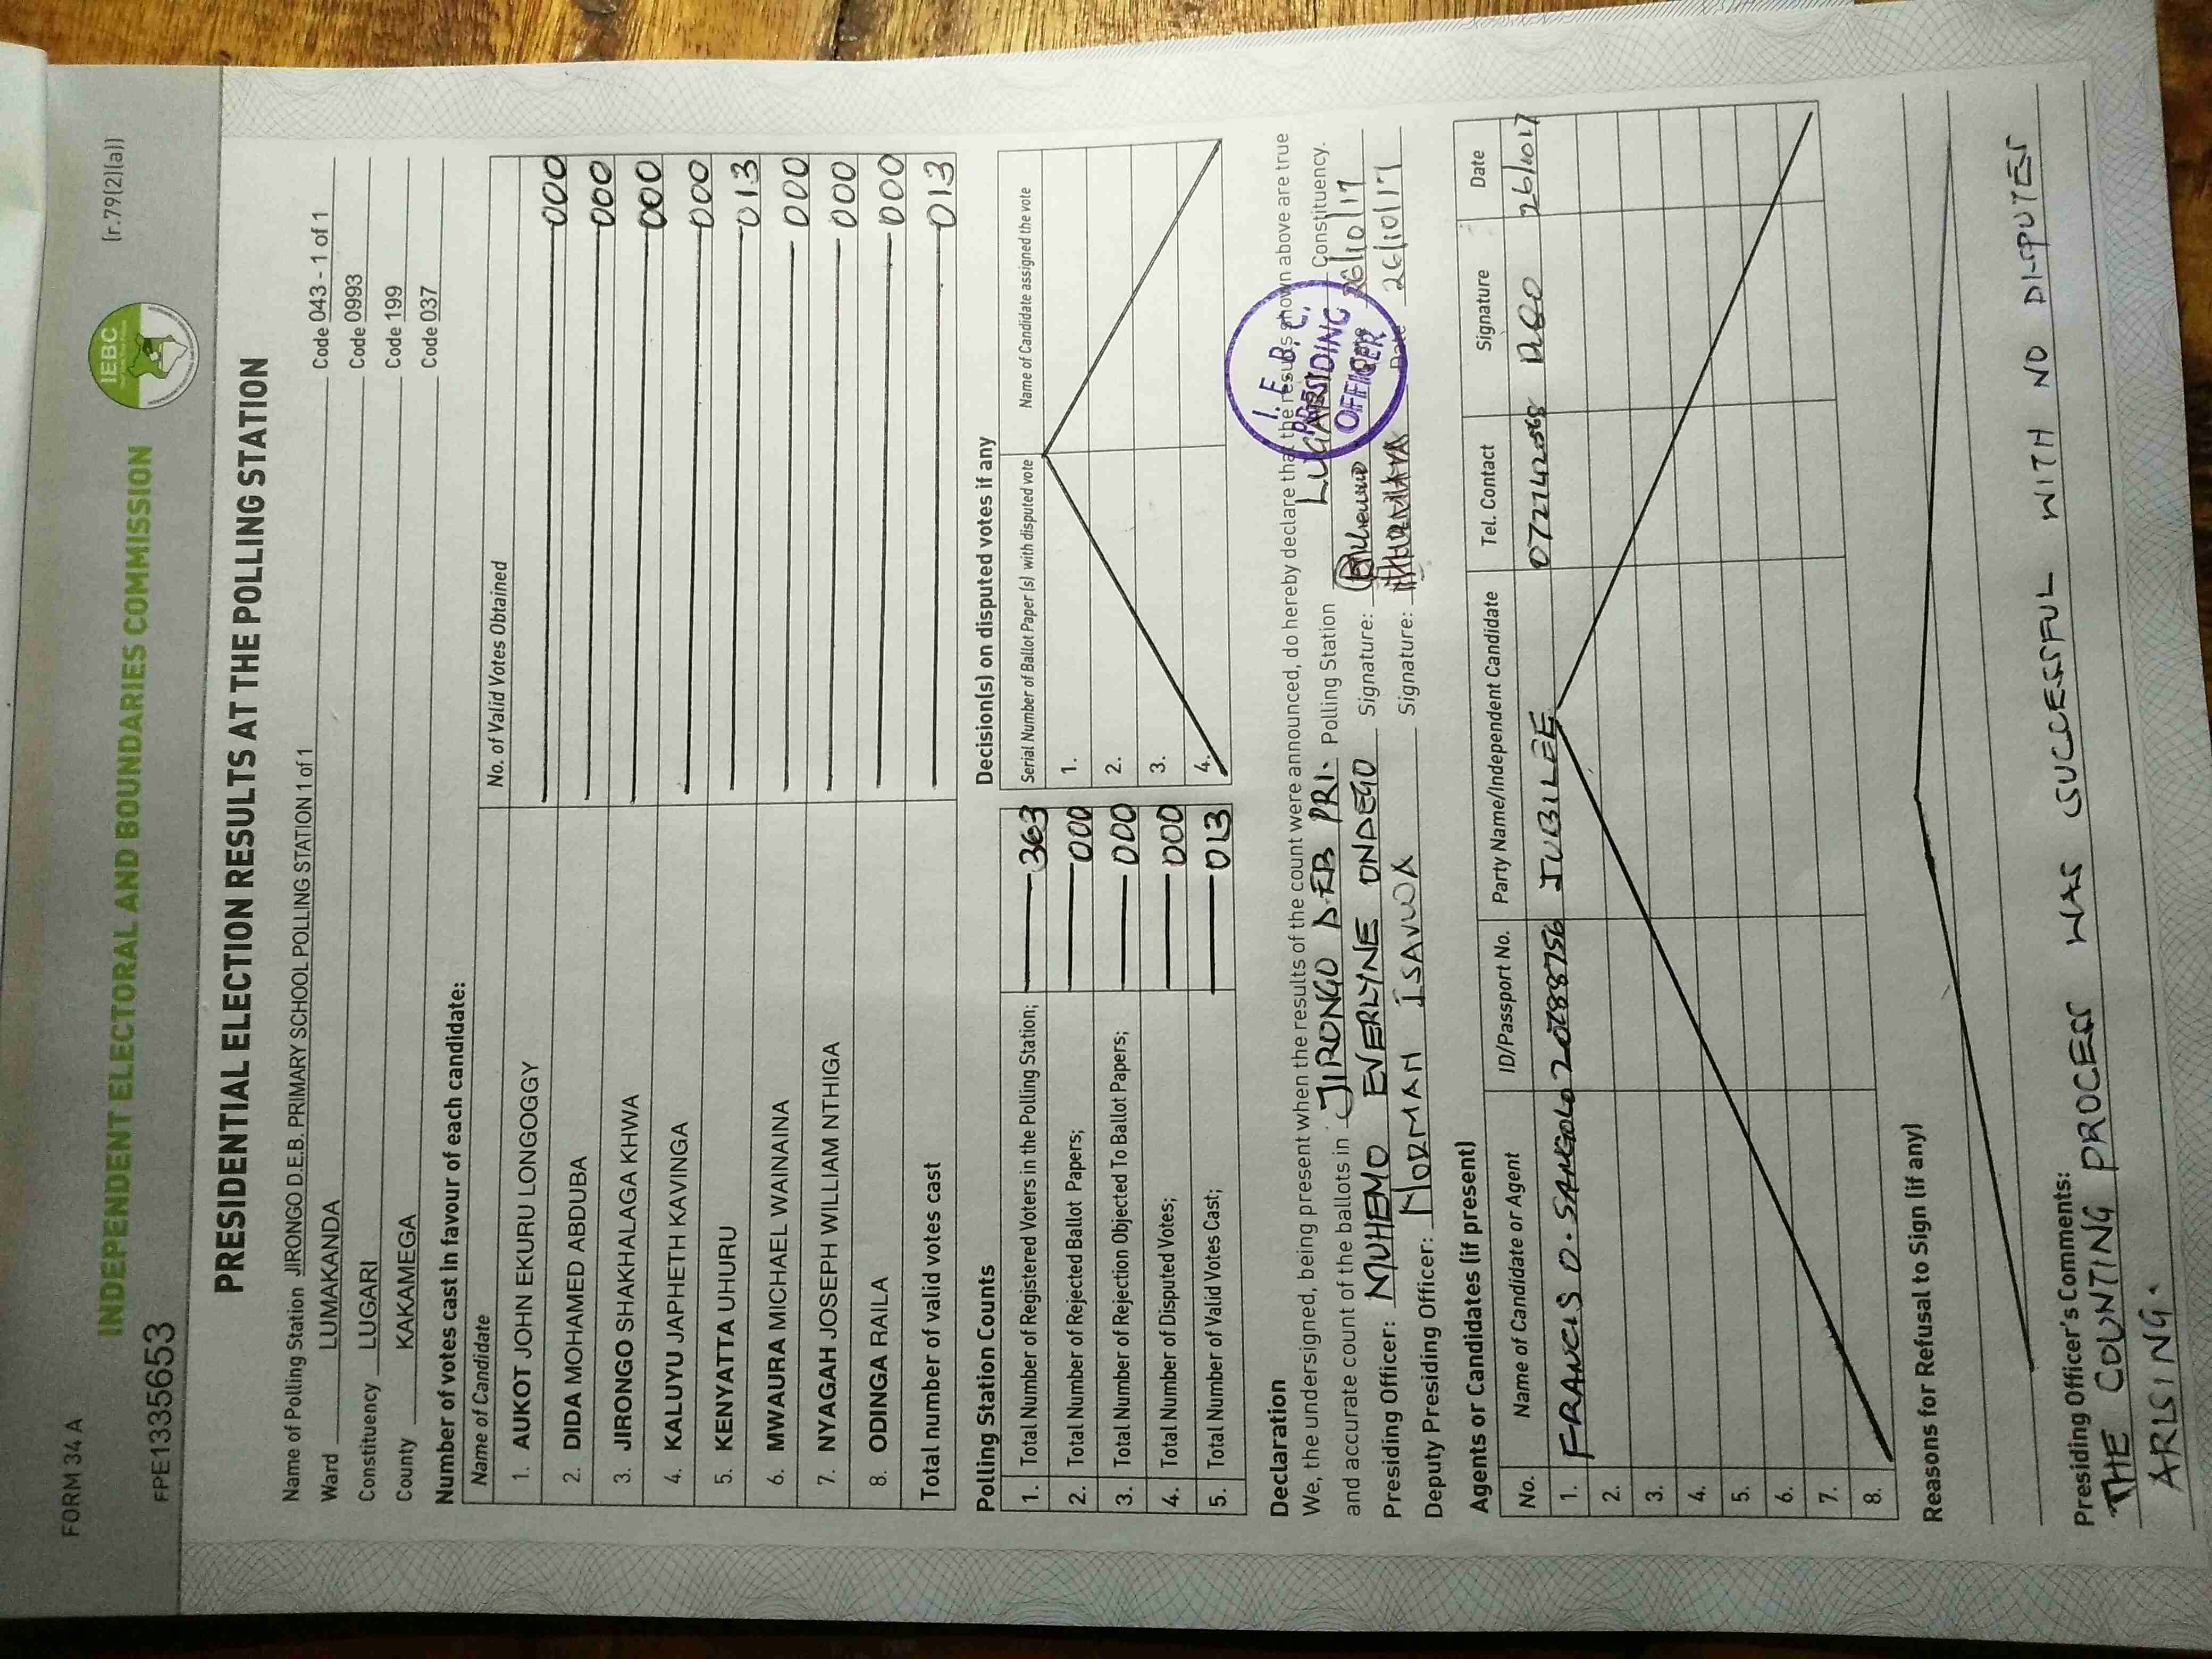 FORM 34 A
(r.79(2)(a))
IEBC
INDEPENDENT ELECTORAL AND BOUNDARIES COMMISSION
FPE1335653
PRESIDENTIAL ELECTION RESULTS AT THE POLLING STATION
Name of Polling Station JIRONGO D.E.B. PRIMARY SCHOOL POLLING STATION 1 of 1 Code 043 - 1 of 1
Ward LUMAKANDA Code 0993
Constituency LUGARI Code 199
County KAKAMEGA Code 037
Number of votes cast in favour of each candidate:
Name of Candidate No. of Valid Votes Obtained
1. AUKOT JOHN EKURU LONGOGGY 000
2. DIDA MOHAMED ABDUBA 000
3. JIRONGO SHAKHALAGA KHWA 000
4. KALUYU JAPHETH KAVINGA 000
5. KENYATTA UHURU 013
6. MWAURA MICHAEL WAINAINA 000
7. NYAGAH JOSEPH WILLIAM NTHIGA 000
8. ODINGA RAILA 000
Total number of valid votes cast 013
Polling Station Counts
1. Total Number of Registered Voters in the Polling Station; 363
2. Total Number of Rejected Ballot Papers; 000
3. Total Number of Rejection Objected To Ballot Papers; 000
4. Total Number of Disputed Votes; 000
5. Total Number of Valid Votes Cast; 013
Decision(s) on disputed votes if any
Serial Number of Ballot Paper (s) with disputed vote Name of Candidate assigned the vote
1.
2.
3.
4.
Declaration
We, the undersigned, being present when the results of the count were announced, do hereby declare that the results shown above are true
and accurate count of the ballots in JIRONGO D.EB PRI. Polling Station LUGARI Constituency.
Presiding Officer: MUHEMO EVERLYNE ONDEGO Signature: Date 26/10/17
Deputy Presiding Officer: NORMAN ISAVWA Signature: Date 26/10/17
I.E.B.C.
PRESIDING
OFFICER
Agents or Candidates (if present)
No. Name of Candidate or Agent ID/Passport No. Party Name/Independent Candidate Tel. Contact Signature Date
1. FRANCIS O. SANGOLO JUBILEE 26/10/17
2.
3.
4.
5.
6.
7.
8.
Reasons for Refusal to Sign (if any)
Presiding Officer's Comments:
THE COUNTING PROCESS WAS SUCCESSFUL WITH NO DISPUTES
ARISING.